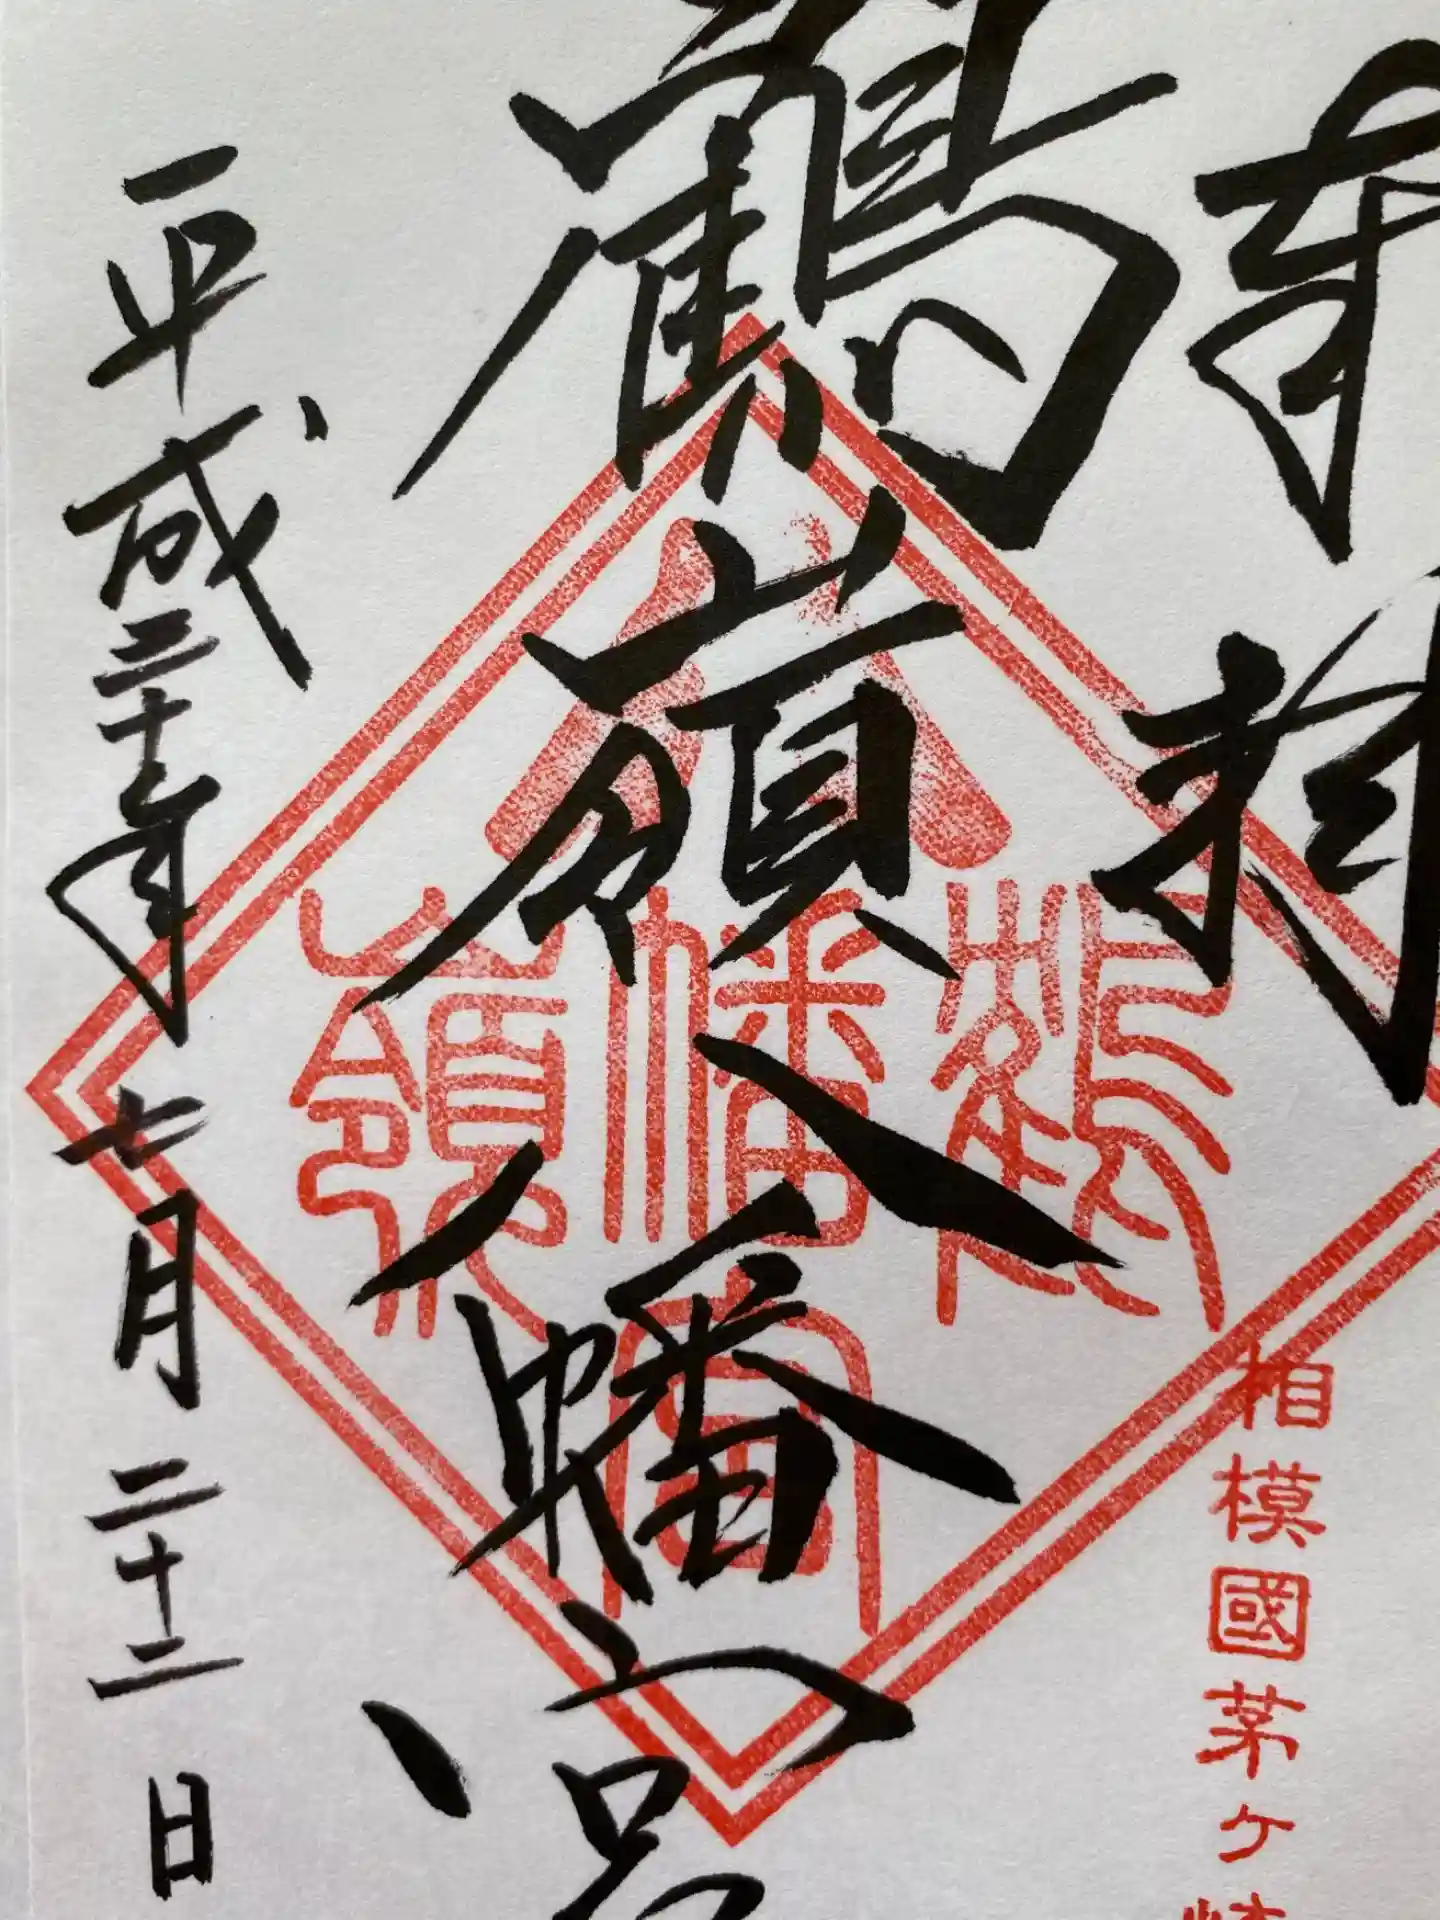 奉拝
相模國茅ヶ崎
鶴嶺八幡宮
鶴
八幡宮
嶺
平成三十年七月二十二日